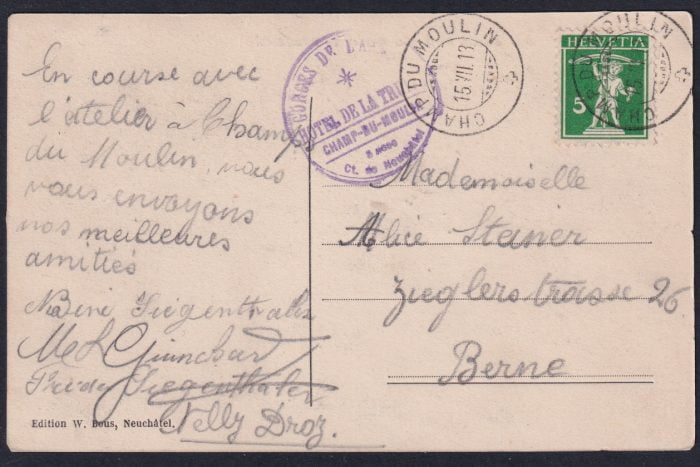 En course avec
l'atelier à Champ
du Moulin, nous
vous envoyons
nos meilleures
amitiés
Siegenthaler
Frieda Siegenthaler
Nelly Droz.
Edition W. Bous, Neuchâtel.
GORGES DE L'A
HÔTEL DE LA TRU
CHAMP-DU-MOULIN
Ct. de Neuchâtel
CHAMP DU MOULIN
15.VII.13
HELVETIA
5
CHAMP DU MOULIN
Mademoiselle
Alice Stainer
Zieglerstrasse 26
Berne